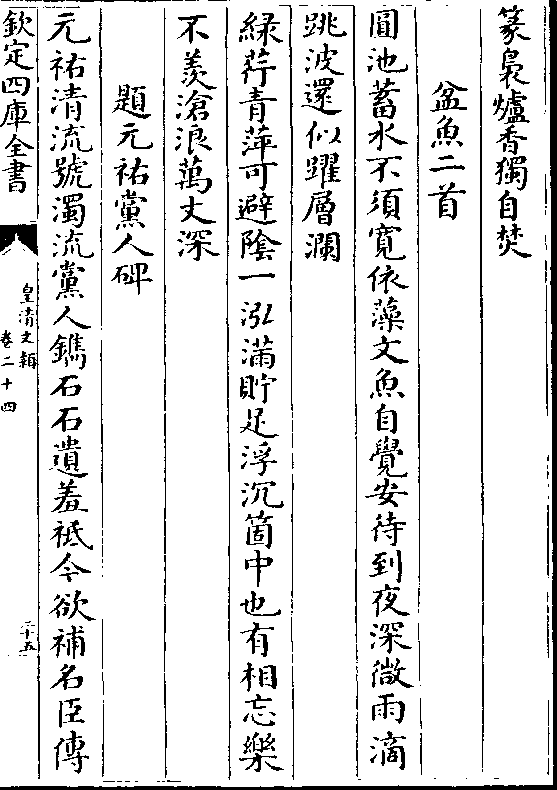 篆裊爐香獨自焚
盆魚二首
圓池蓄水不須寛依藻文魚自覺安待到夜深微雨滴
跳波還似躍層瀾
緑荇青萍可避陰一泓滿貯足浮沉箇中也有相忘樂
不羨滄浪萬丈深
題元祐黨人碑
元祐清流號濁流黨人鐫石石遺羞祗今欲補名臣傳
欽定四庫全書
皇清文穎
卷二十四
二十五